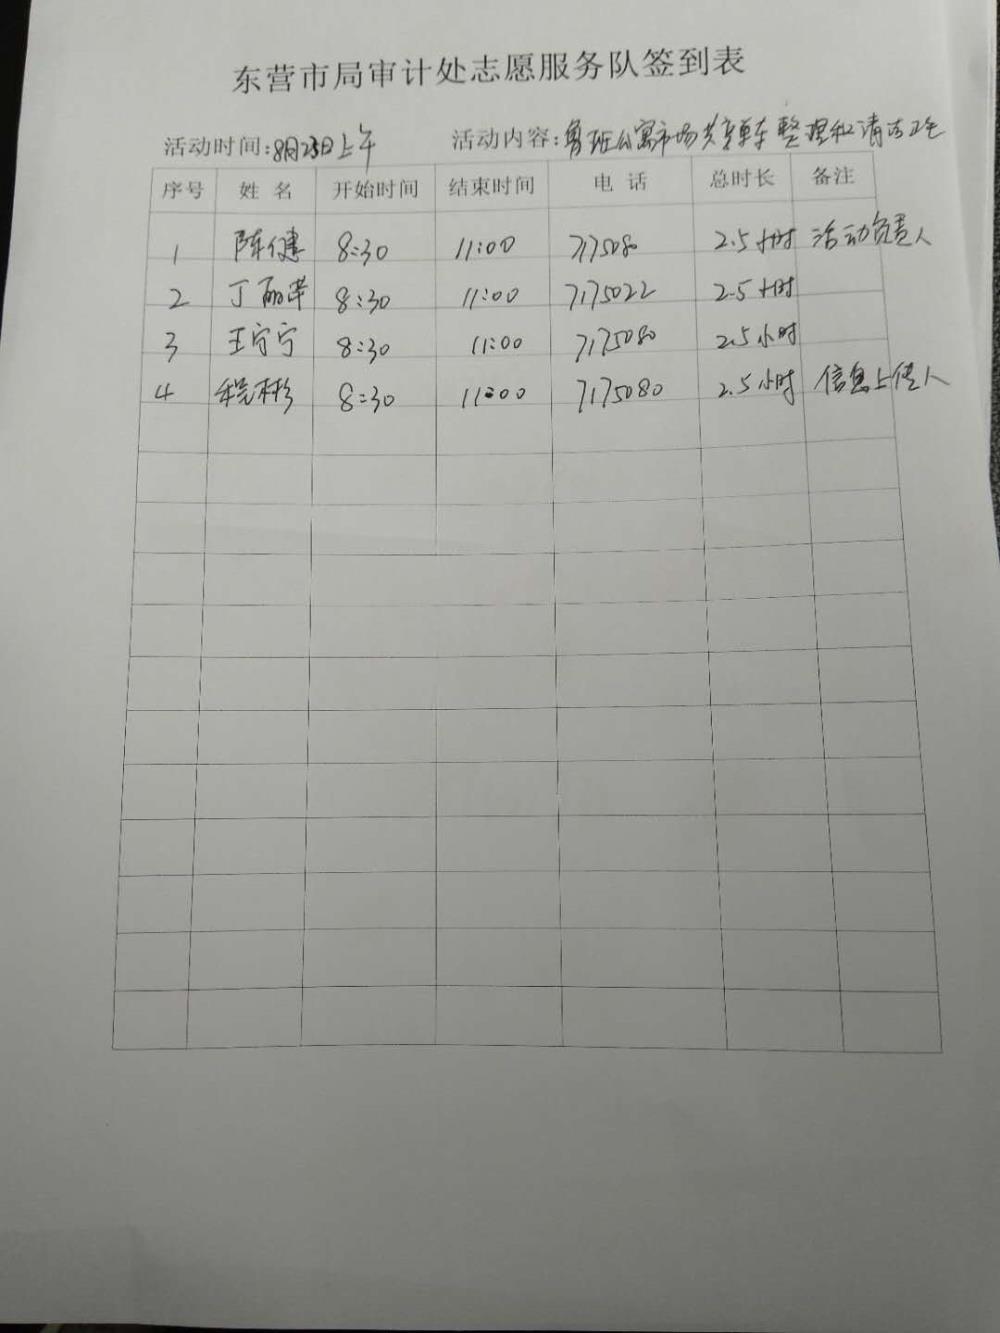 东营市局审计处志愿服务队签到表
活动时间:8月23日上午 活动内容:鲁班公寓市场共享单车整理和清洁卫生
序号 姓名 开始时间 结束时间 电话 总时长 备注
1 陈健 8:30 11:00 717508 2.5小时 活动负责人
2 丁丽萍 8:30 11:00 7175022 2.5小时
3 王宁宁 8:30 11:00 7175080 2.5小时
4 程彬彬 8:30 11:00 7175080 2.5小时 信息上传人